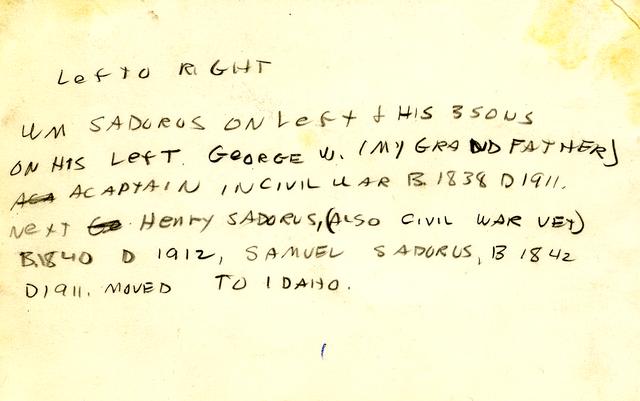 LeftO RIGHT
WM SADORUS ON Left & HIS 3 SONS
ON HIS Left. GeORGE W. (MY GRANDFATHER)
A CAPTAIN IN CIVIL WAR B. 1838 D 1911.
NexT Henry SADORUS, (ALSO CIVIL WAR VET)
B. 1840 D 1912, SAMUEL SADORUS, B 1842
D 1911. MOVED TO IDAHO.
1